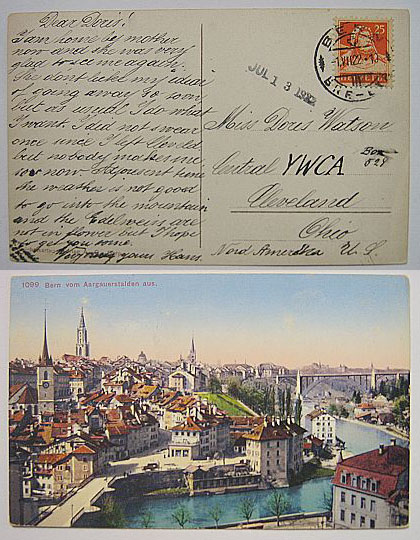 Dear Doris!
I am home by mother
now and she was very
glad to see me again.
She don't liked my idea
of going away so soon,
but as usual I do what
I want. I did not swear
once since I left Cleveld
but nobody makes me
sor now. At present time
the weather is not good
to go into the mountain
and the Edelweiss are
not in flower but I hope
to get you some.
yours Hans.
BERN
1.VII.22
25
HELVETIA
JUL 13 1922
Miss Doris Watson
Central YWCA
Box
829
Cleveland
Ohio
Nord Amerika U. S.
1099 Bern vom Aargauerstalden aus.